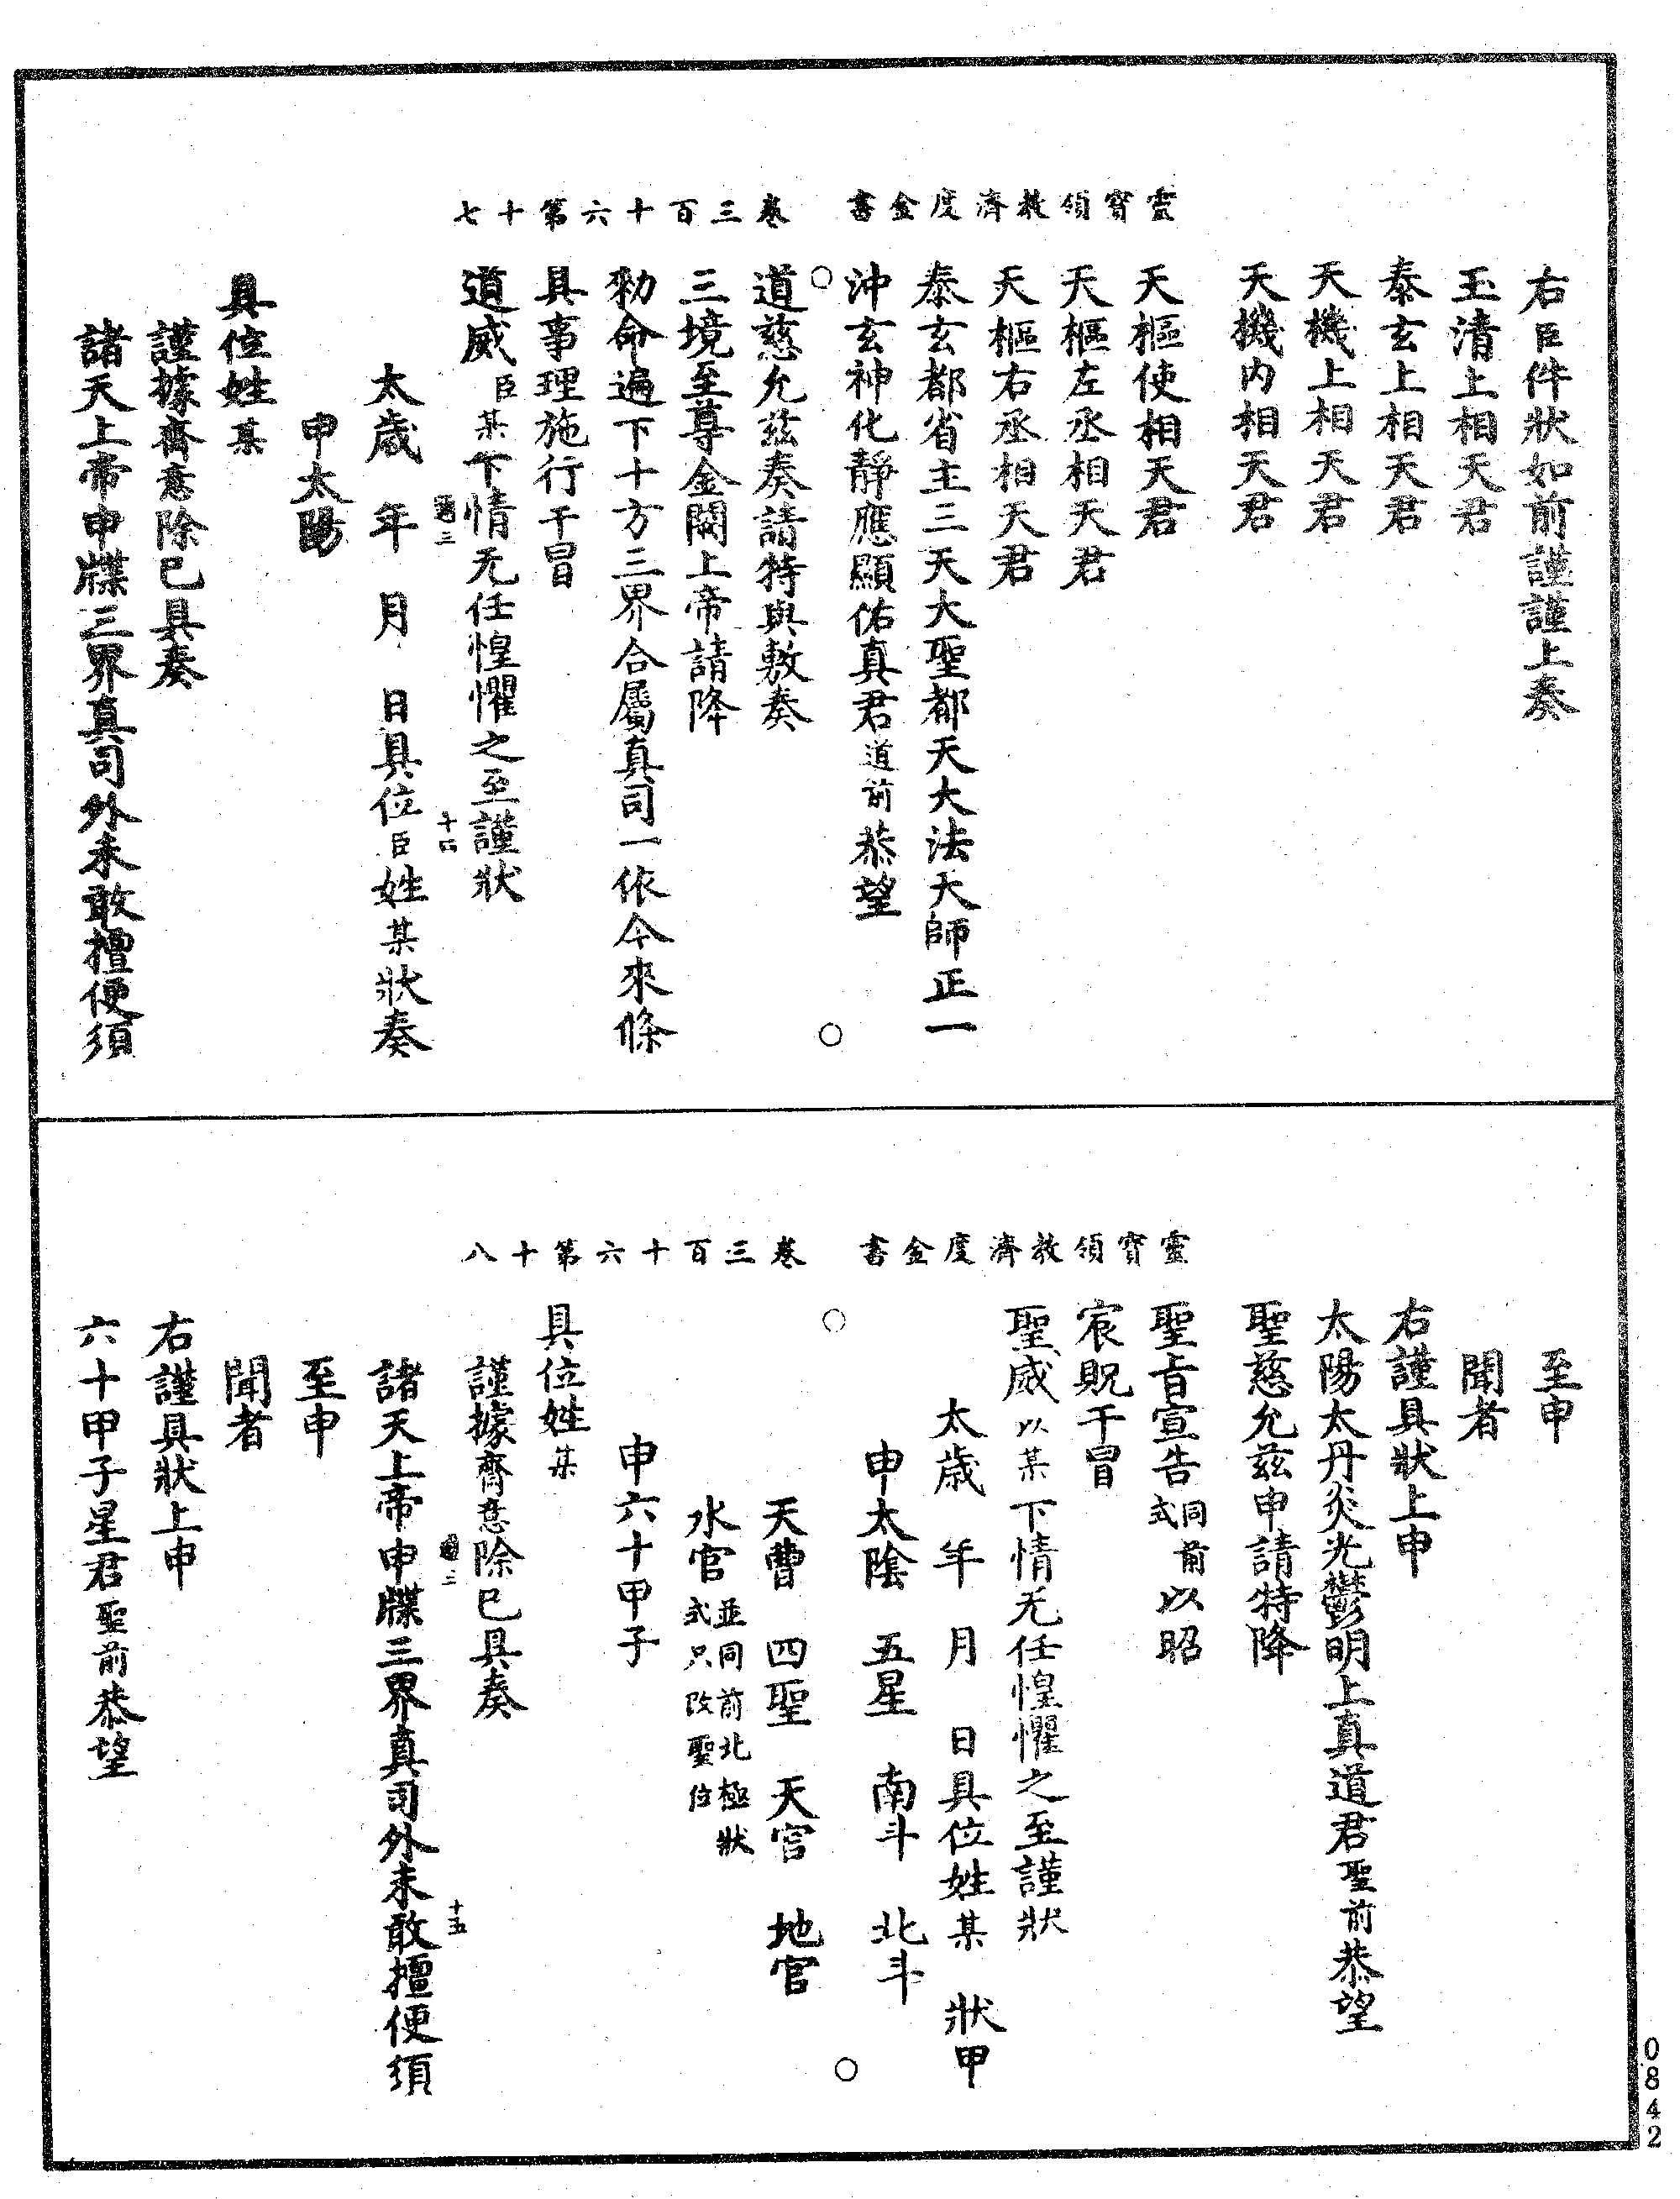 靈寶領教濟度金書　卷三百十六第十七
右臣件狀如前謹謹上奏
玉清上相天君
泰玄上相天君
天機上相天君
天機內相天君
天樞使相天君
天樞左丞相天君
天樞右丞相天君
泰玄都省主三天大聖都天大法天師正一
沖玄神化靜應顯佑真君道前恭望
道慈允茲奏請特與敷奏
三境至尊金闕上帝請降
勑命遍下十方三界合屬真司一依今來條
具事理施行干冒
道威臣某下情无任惶懼之至謹狀
太歲　年　月　日具位臣姓某狀奏
申太陽
具位姓某
謹據齋意除已具奏
諸天上帝申牒三界真司外未敢擅便須
靈寶領教濟度金書　卷三百十六第十八
至申
聞者
右謹具狀上申
太陽太丹炎光鬱明上真道君聖前恭望
聖慈允茲申請特降
聖旨宣告同前式以昭
宸貺干冒
聖威以某下情无任惶懼之至謹狀
太歲　年　月　日具位姓某　狀申
申太陰　五星　南斗　北斗
天曹　四聖　天官　地官
水官並同前北極狀式只改聖位
申六十甲子
具位姓某
謹據齋意除已具奏
諸天上帝申牒三界真司外未敢擅便須
十五
至申
聞者
右謹具狀上申
六十甲子星君聖前恭望
0842